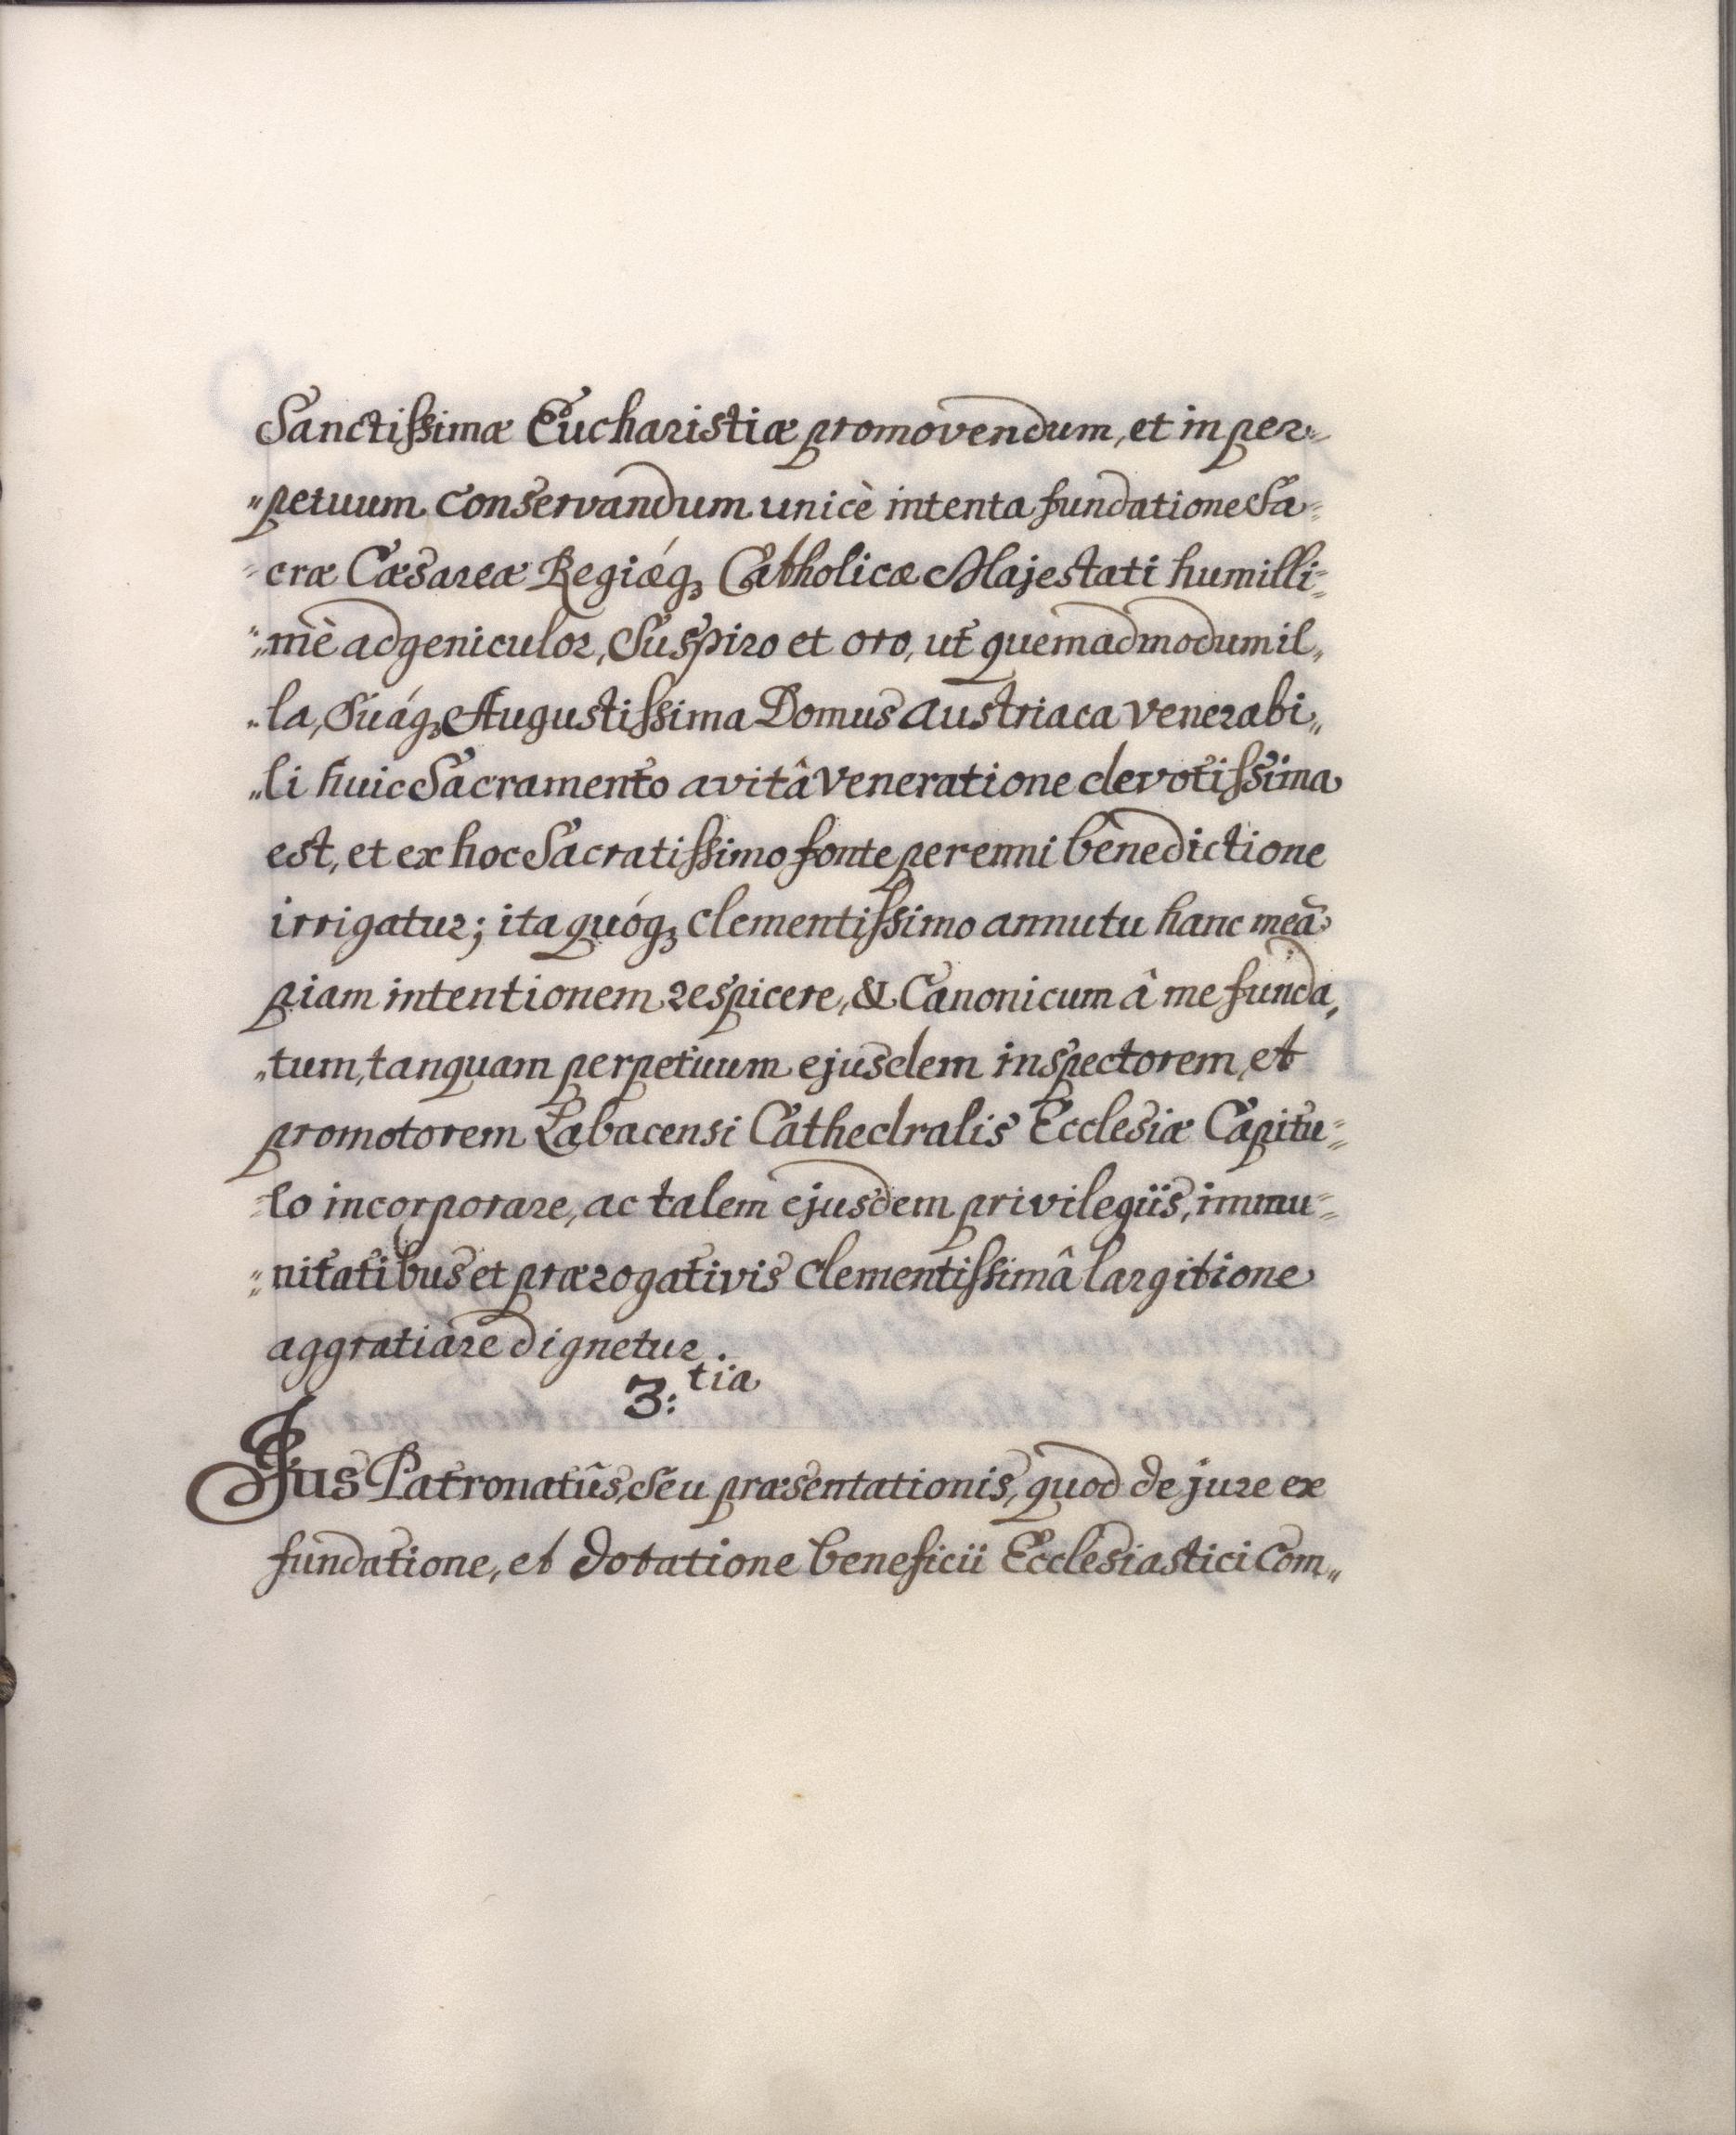 Sanctissimæ Eucharistiæ promovendum, et in per=
"petuum conservandum unicè intenta fundatione Sa=
=cræ Cæsareæ Regiæq3 Catholicæ Majestati humilli=
"mè adgeniculor, Suspiro et oro, ut quemadmodum il„
"la, Suáq3 Augustissima Domus Austriaca Venerabi„
„li huic Sacramento avitâ Veneratione devotissima
est, et ex hoc Sacratissimo fonte perenni benedictione
irrigatur; ita quóq3 clementissimo annutu hanc meã
piam intentionem respicere, & Canonicum â me funda„
„tum, tanquam perpetuum ejusdem inspectorem, et
promotorem Labacensi Cathedralis Ecclesiæ Capitu=
=lo incorporare, ac talem ejusdem privilegiis, immu=
"nitatibus et prærogativis Clementissimâ largitione
aggratiare dignetur.
3:tia
Jus Patronatûs, Seu præsentationis, quod de jure ex
fundatione, et dotatione beneficii Ecclesiastici Com„